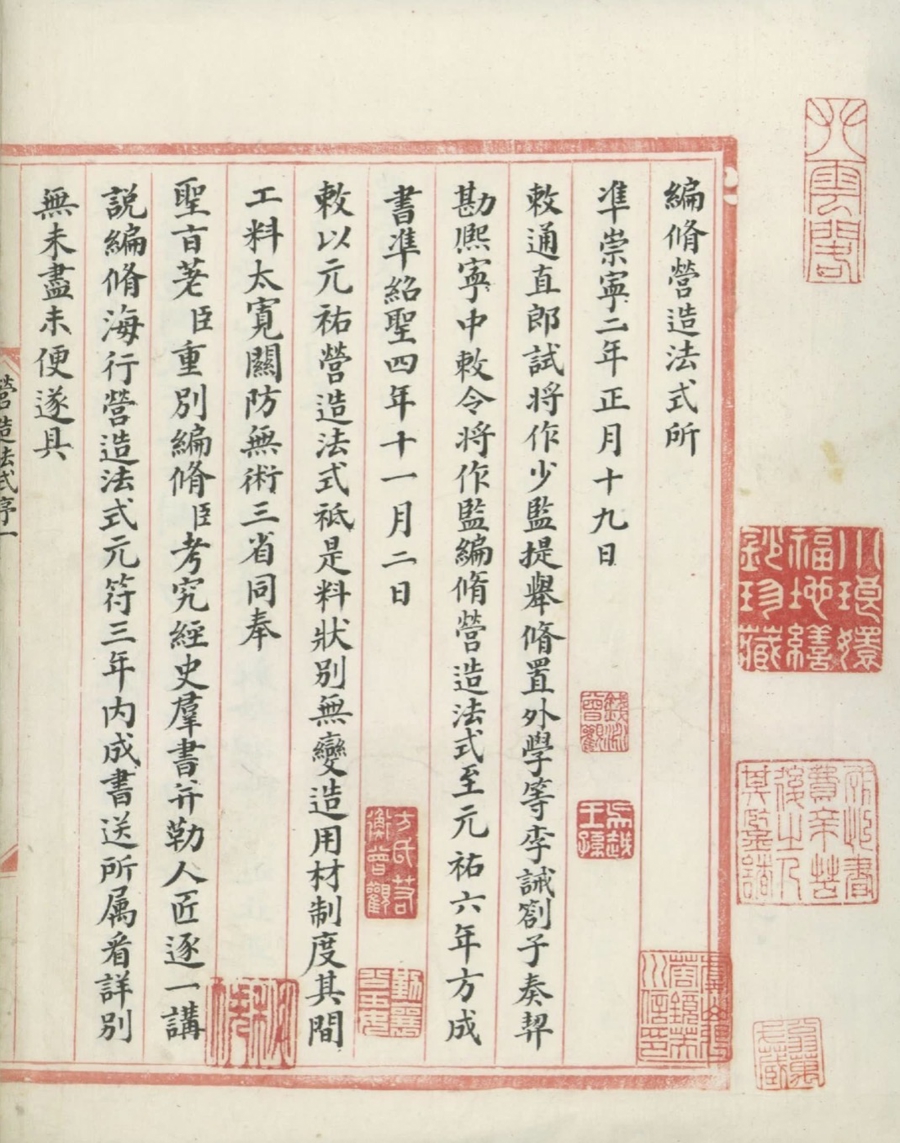 編脩營造法式所
準崇寧二年正月十九日
敕通直郎試將作少監提舉脩置外學等李誡劄子奏契
勘熙寧中敕令將作監編脩營造法式至元祐六年方成
書準紹聖四年十一月二日
敕以元祐營造法式秪是料狀別無變造用材制度其間
工料太寬關防無術三省同奉
聖㫖荖臣重別編脩臣考究經史羣書并勒人匠逐一講
說編脩海行營造法式元符三年内成書送所属看詳別
無未盡未便遂具
營造法式序一
小琅嬛
福地繕
鈔珍藏